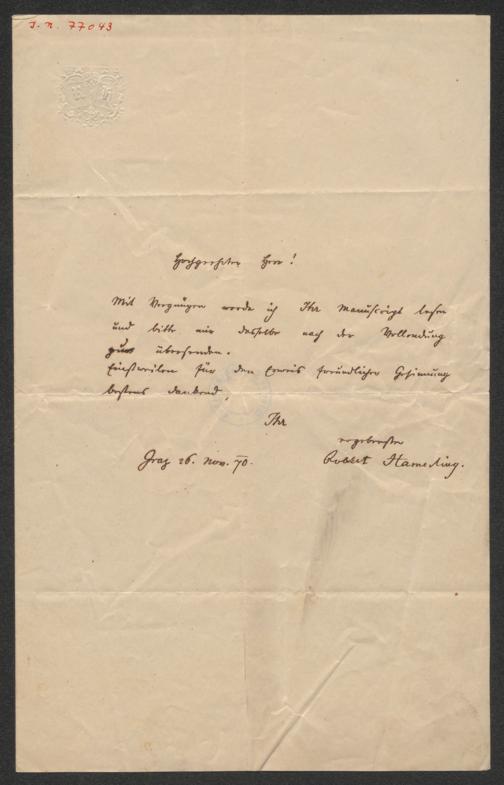 J. N. 77043
Hochgeehrter Herr!
Mit Vergnügen werde ich Ihr Manuscript lesen
und bitte mir dasselbe nach der Vollendung
zu übersenden.
Einstweilen für den Beweis freundlicher Gesinnung
bestens dankend,
Ihr
ergebenster
Graz 26. Nov. 70.
Robert Hamerling.